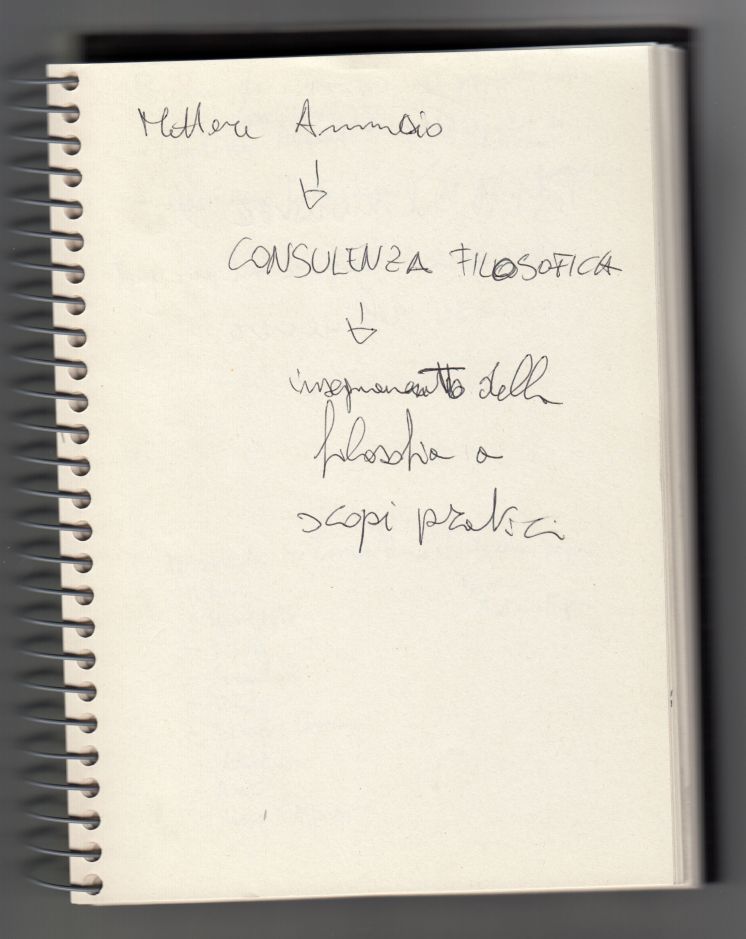 Mettere Annuncio
↓
CONSULENZA FILOSOFICA
↓
insegnamento della
filosofia a
scopi pratici